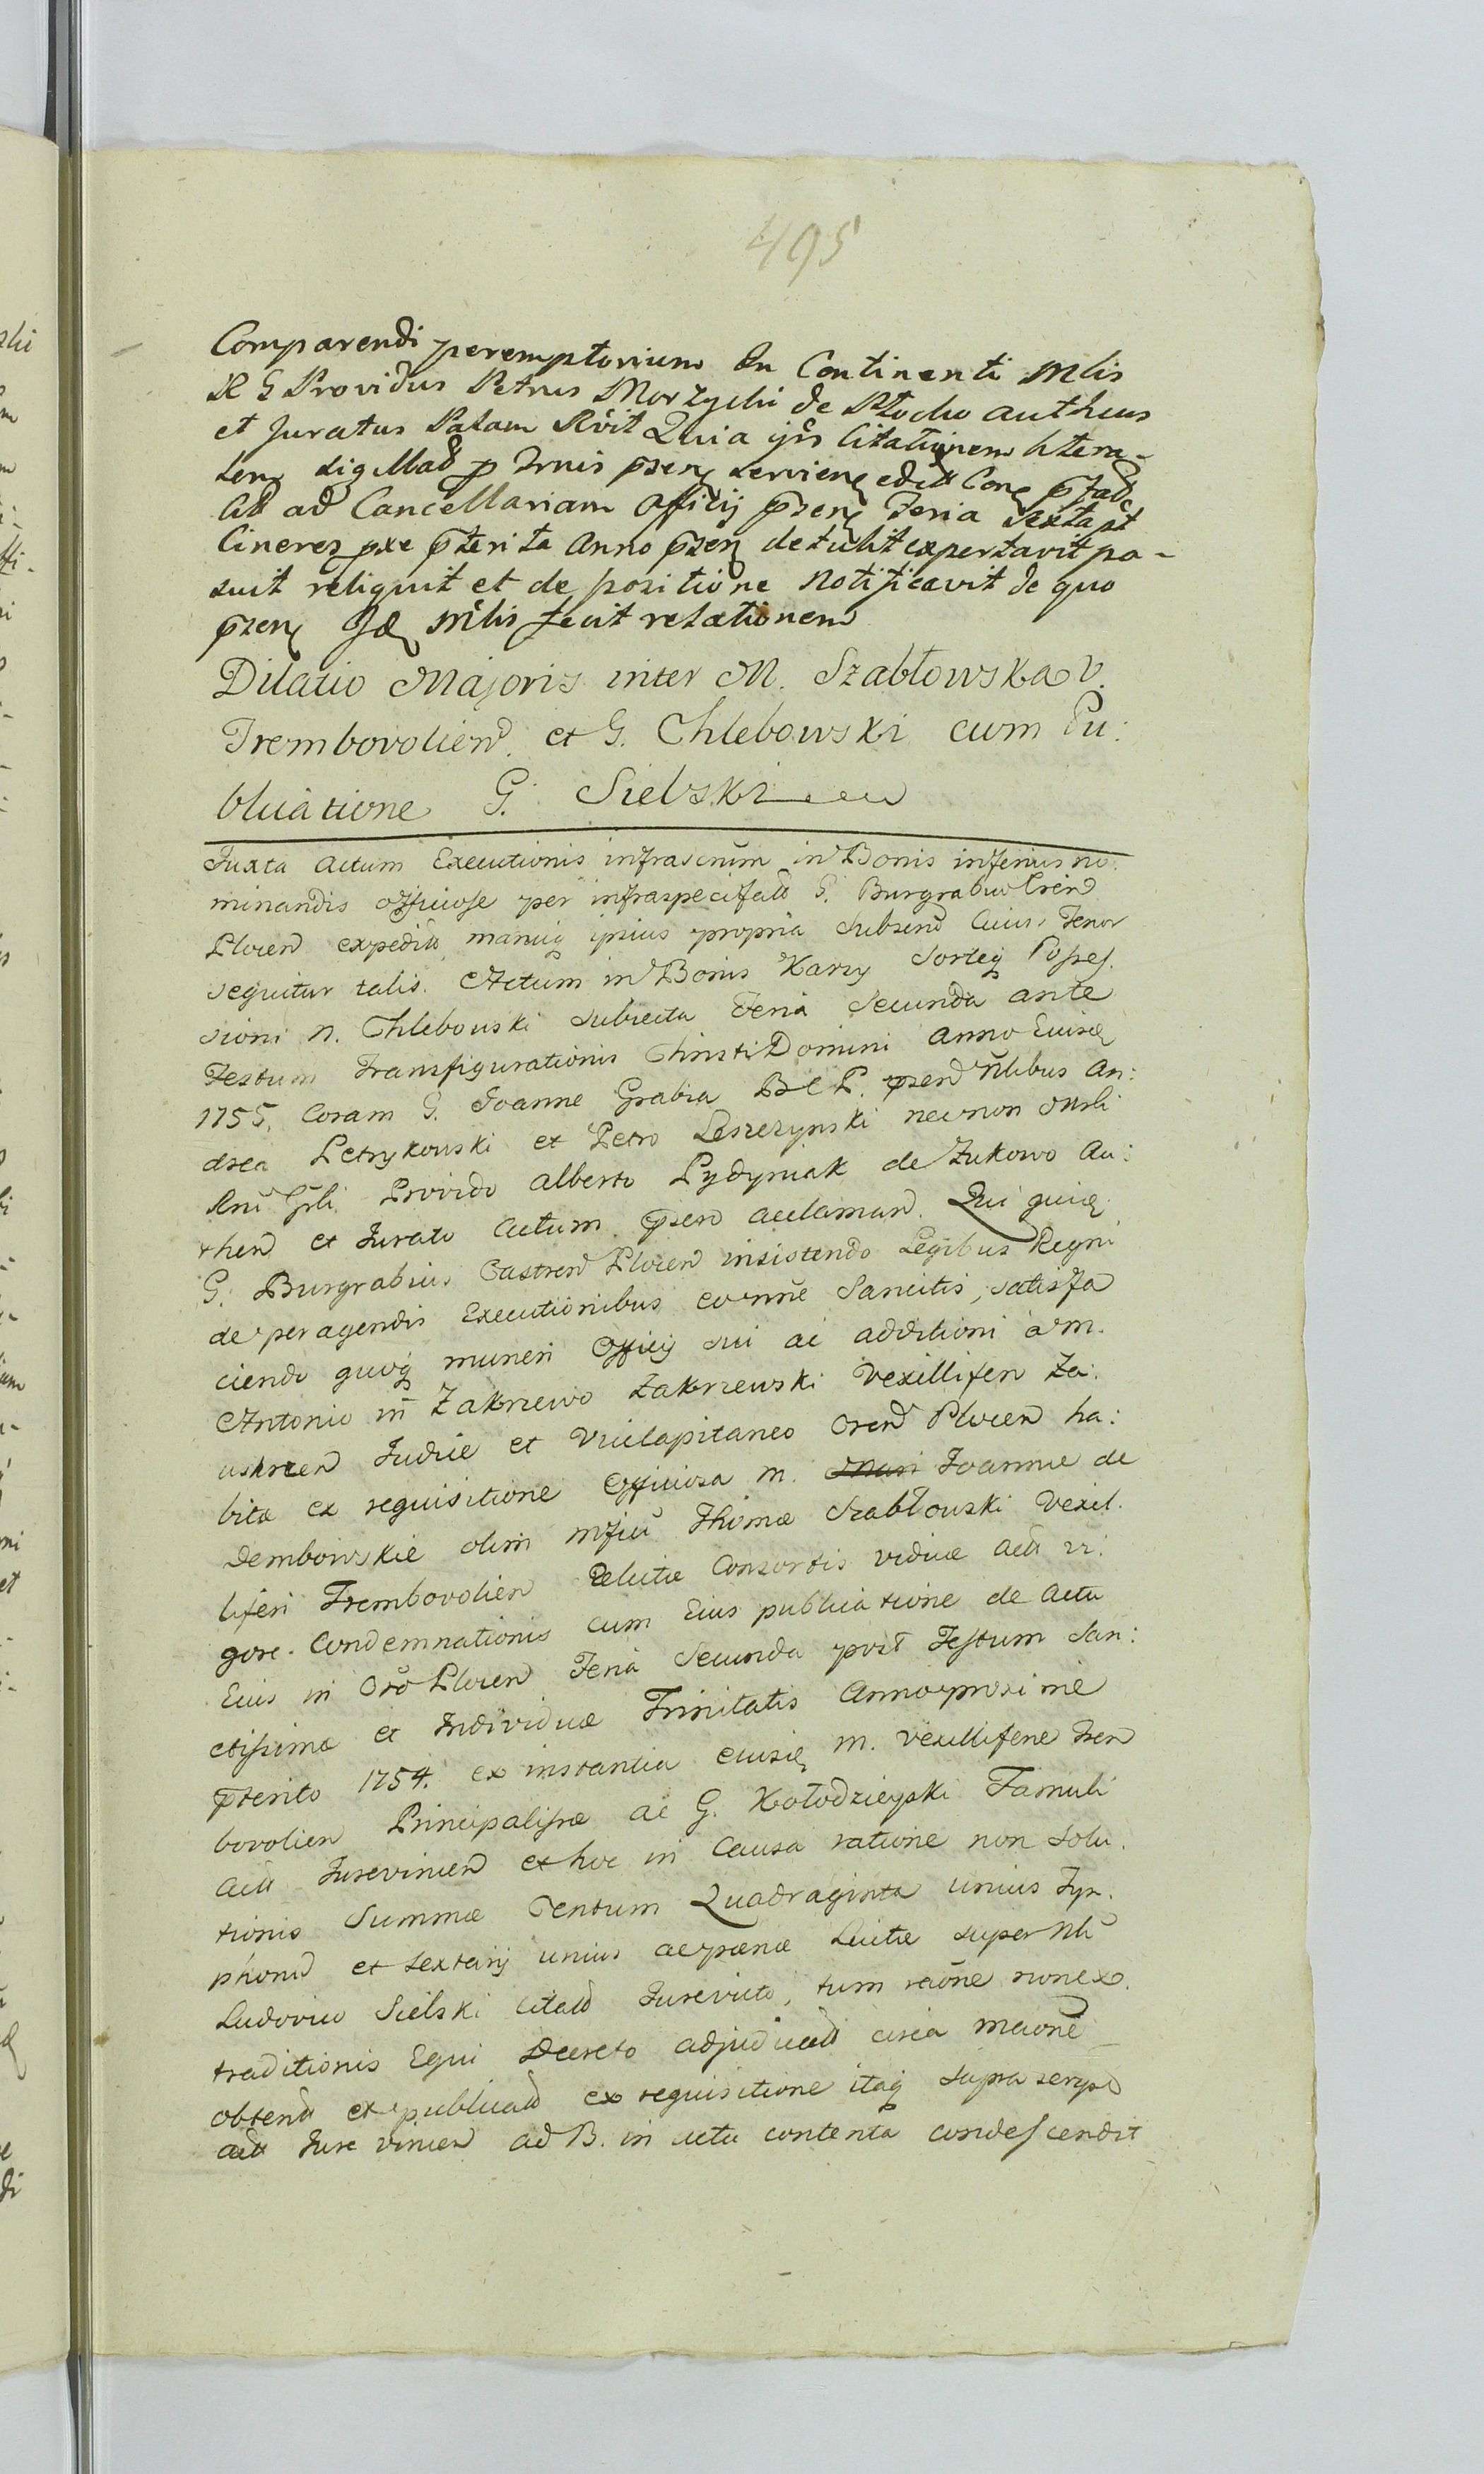 495
Comparendi peremptorium In Continenti Mlis
R G Providus Petrus Morzycki de Płocko authens
et Juratus Palam Rvit Quia ips Citationem litera-
ten Sigillad p Trnis psen servien edid Con
Cit ad Cancellariam Officij psen Feria Sexta pt
Cineres pxe pterita Anno psen detulit expertavit po-
suit reliquit et de positione notificavit de quo
psen Id Mlis fecit relationem
Dilatio Majoris inter M. Szabłowska V.
Trembovolien et G. Chlebowski cum Pu:
blicatione G. Sielski
Juxta Actum Executionis infrascrum in Bonis inferius no:
minandis officiose per infraspecifatt G. Burgrabium Cren
Plocen expeditt manuq ipsius propria Subscrid Cuius Tenor
sequitur talis. Actum in Bonis Karzy Sorteq Posses.
sioni N. Chlebowski Subiecta Feria Secunda ante
Festum Transfigurationis Christi Domini Anno Eiusd
1755. Coram G. Joanne Grabia B C P. psen nlibus An:
drea Petrykowski et Petro Leszczynski necnon Mrli
Rni Grli Provido Alberto Pydyniak de Zukowo Au:
then et Jurato Actum psen acclaman. Qui quid
G. Burgrabius Castren Plocen insistendo Legibus Regni
de peragendis Executionibus coenne Sancitis, satisfa
ciendo quoq muneri Officij sui ac additioni a M.
Antonio in Zakrzewo Zakrzewski Vexillifero Za:
uskrzen Judice et Vicecapitaneo Cren Plocen ha:
bita ex requisitione Officiosa M. Joannae de
Dembowskie olim Mfici Thomae Szabłowski Vexil.
liferi Trembovolien Relictae Consortis viduae Actt vi:
gore. Condemnationis cum Eius publicatione de Actu
Eius in Cro Plocen Feria Secunda post Festum San:
ctissimae et Individuae Trinitatis Anno proxime
pterito 1754. ex instantia eiusd M. Vexilliferae Trem
bovolien Principalissae ac G. Kołodzieyski Famuli
Actt Jurevincen et hoc in Causa ratione non Solu.
tionis Summae Centum Quadraginta unius Tyn.
phonu et sextarij unius ac paenae Luitae super Nli
Ludovico Sielski Citatt Jurevicto, tum raone nonex.
traditionis Equi Decreto adjudicatt circa Meione
obtent et publicatt ex requisitione itaq suprascript
Actt Jure vincen ad B. in actu contenta condescendit